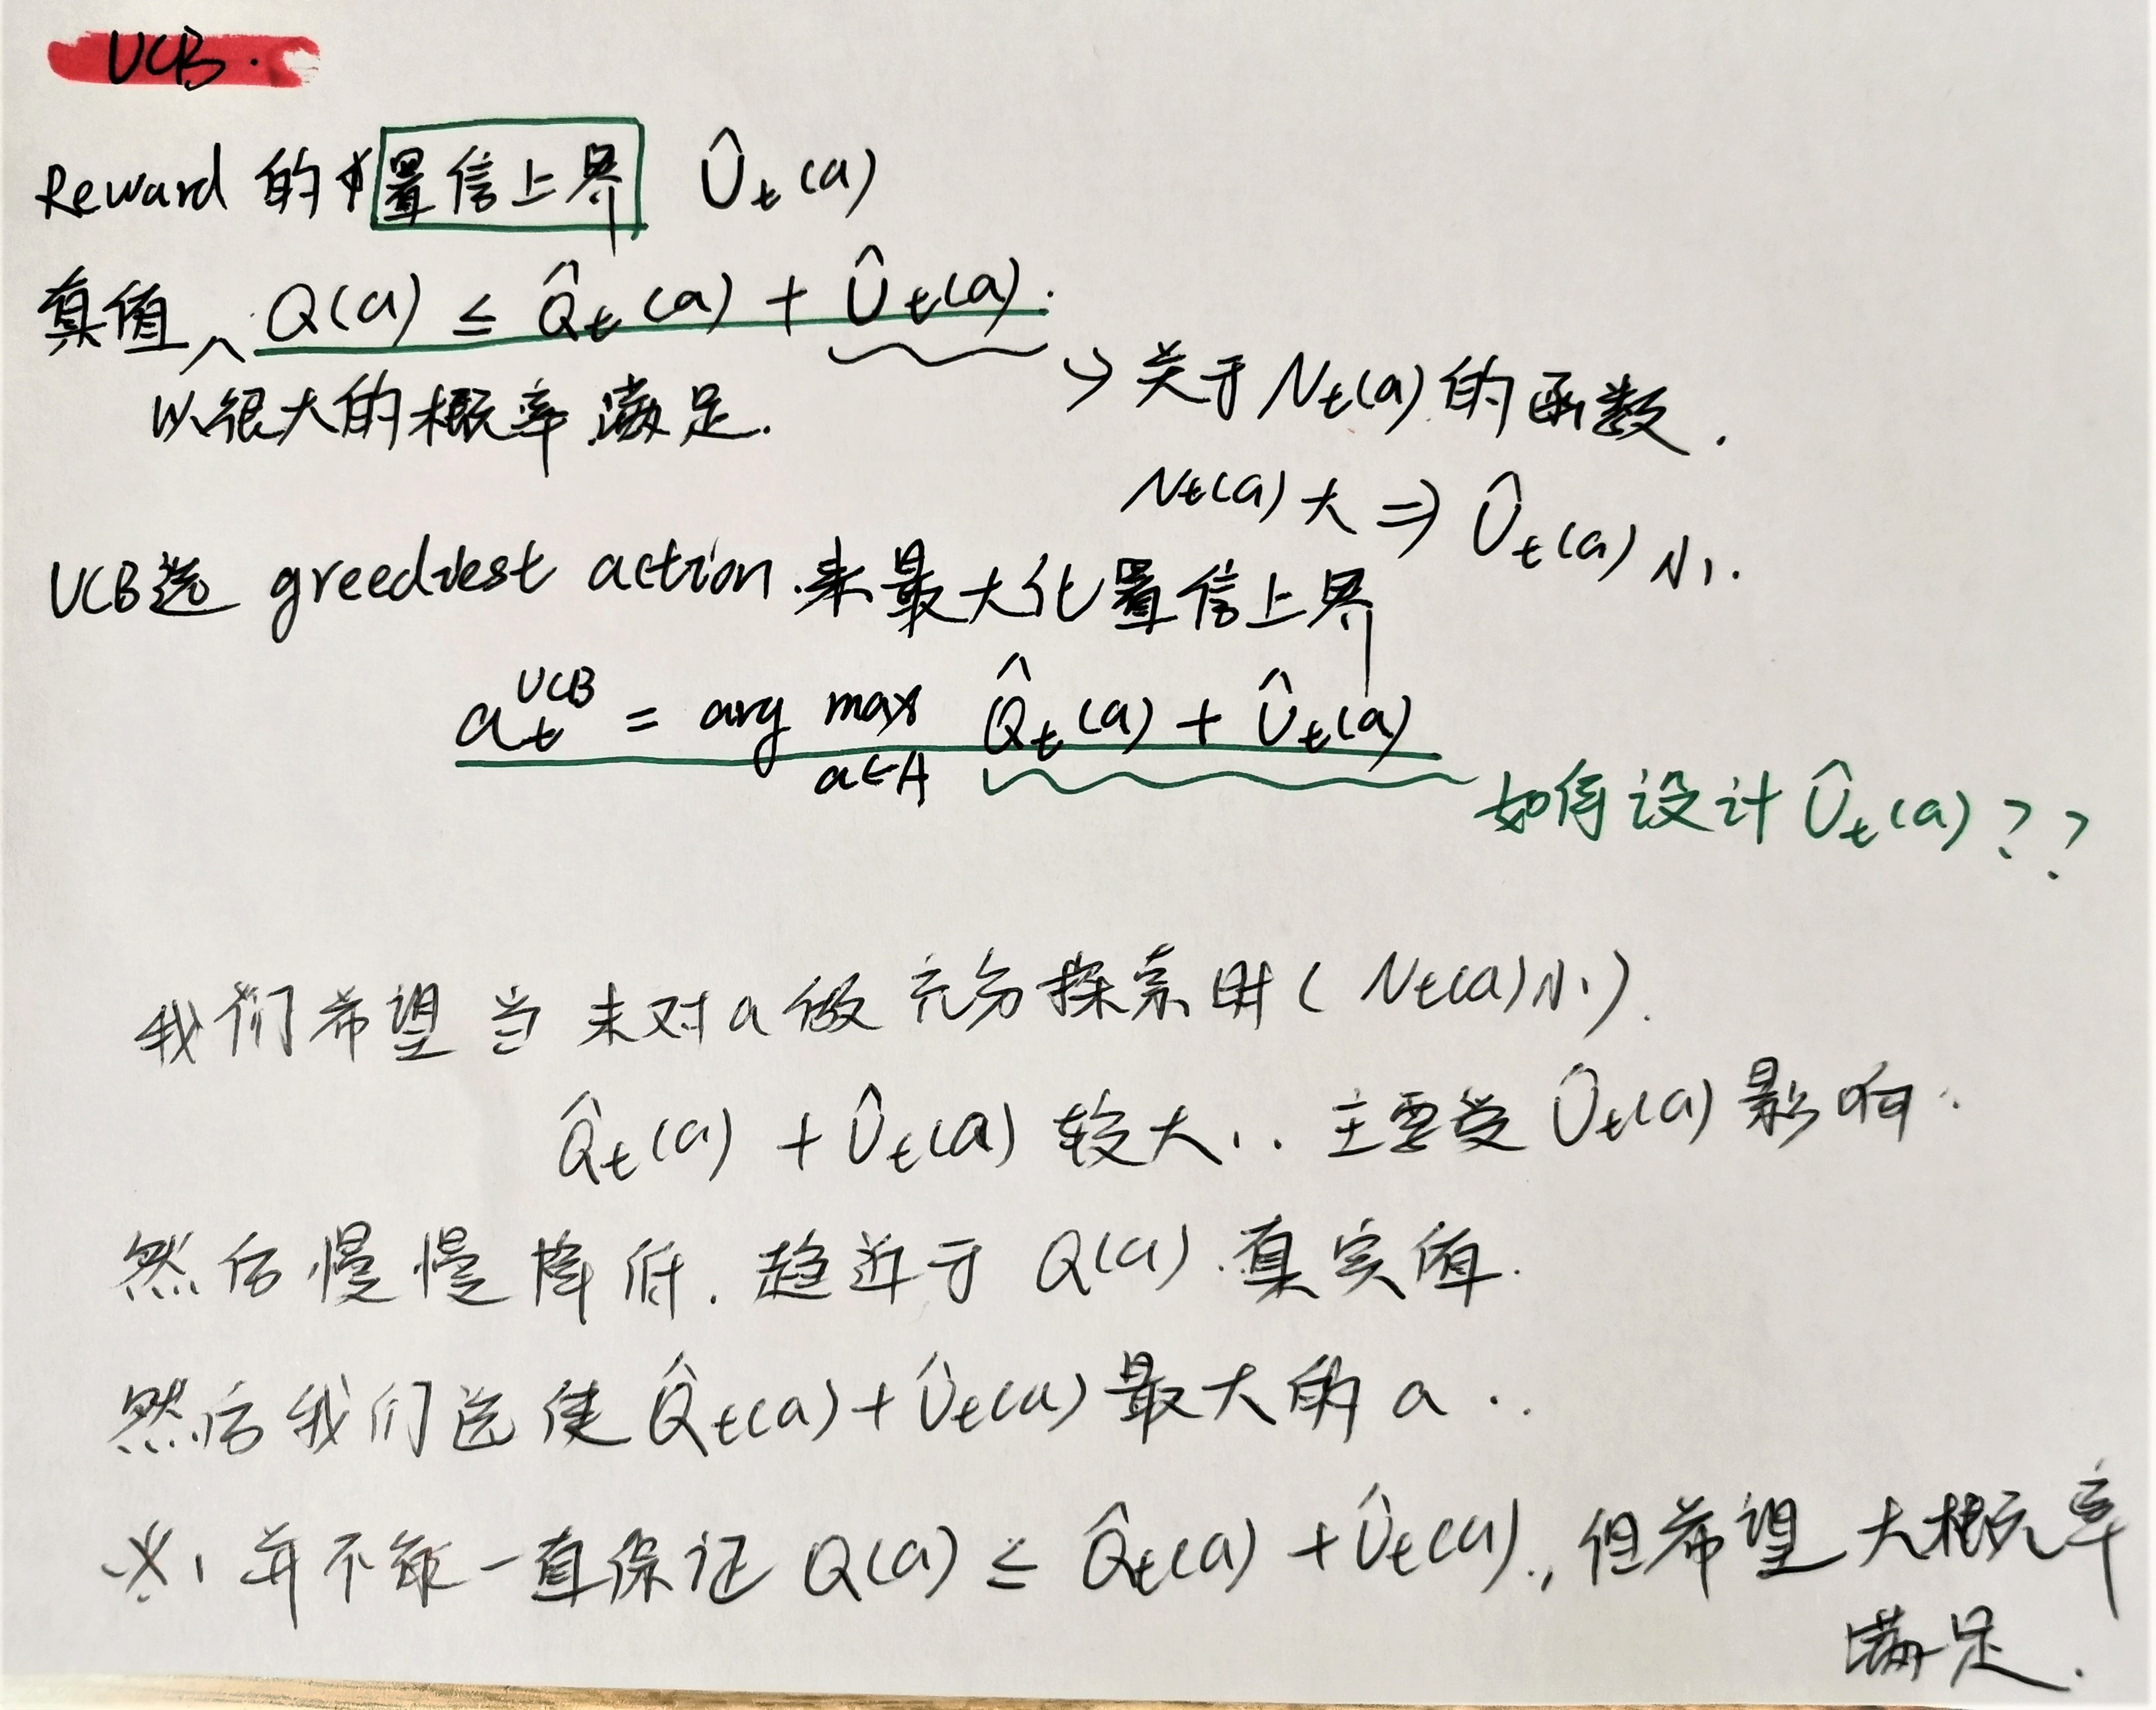 UCB.
Reward 的置信上界 Û_t(a)
真值 Q(a) ≤ Q̂_t(a) + Û_t(a).
以很大的概率满足.
→ 关于 N_t(a) 的函数.
N_t(a) 大 ⇒ Û_t(a) 小.
UCB选 greediest action 来最大化置信上界
a_t^UCB = arg max Q̂_t(a) + Û_t(a)
a∈A
如何设计 Û_t(a)??
我们希望当未对a做充分探索时(N_t(a)小).
Q̂_t(a) + Û_t(a) 较大, 主要受 Û_t(a) 影响.
然后慢慢降低. 趋近于 Q(a) 真实值.
然后我们选使 Q̂_t(a) + Û_t(a) 最大的 a..
※, 并不能一直保证 Q(a) ≤ Q̂_t(a) + Û_t(a)., 但希望大概率
满足.